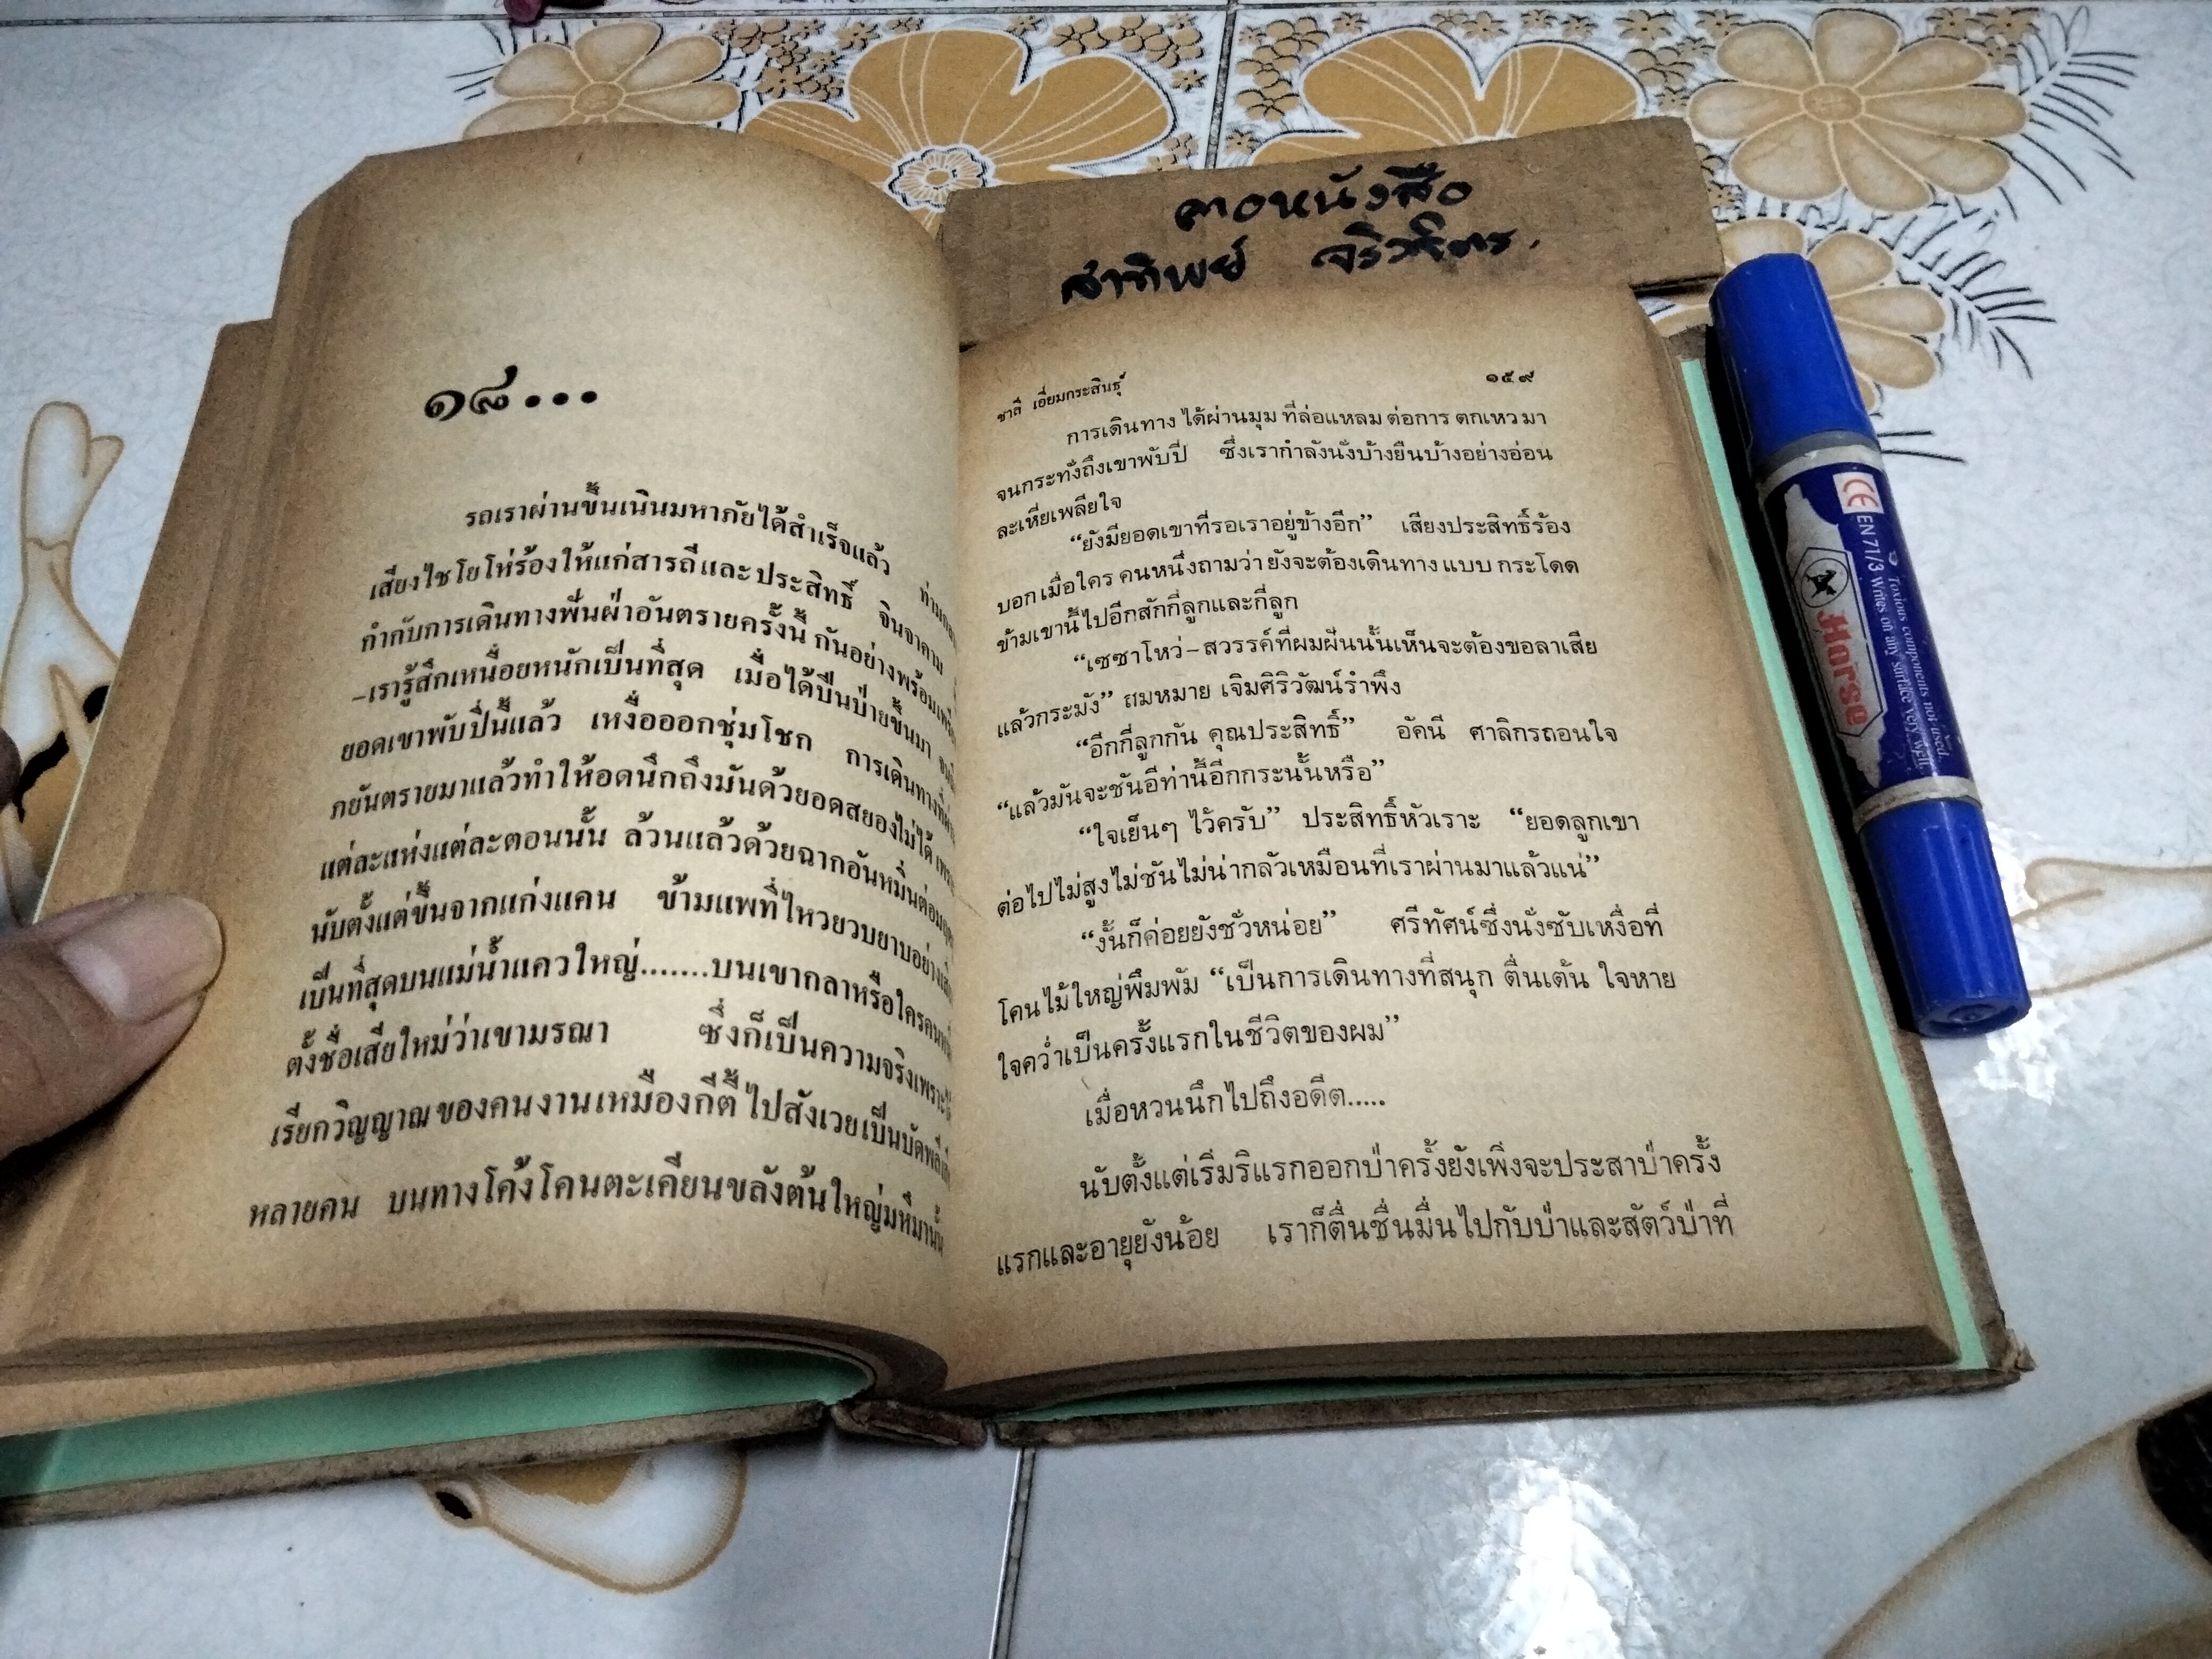 ๑๘...
รถเราผ่านขึ้นเนินมหาภัยได้สำเร็จแล้ว
เสียงไชโยโห่ร้องให้แก่สารถีและประสิทธิ์ จินจาคาม
กำกับการเดินทางฟันฝ่าอันตรายครั้งนี้ กันอย่างพร้อมเพรียง
–เรารู้สึกเหนื่อยหนักเป็นที่สุด เมื่อได้ปีนป่ายขึ้นมา
ยอดเขาพับปี่นี้แล้ว เหงื่อออกชุ่มโชก การเดินทางที่ผ่าน
ภยันตรายมาแล้วทำให้อดนึกถึงมันด้วยยอดสยองไม่ได้ เพราะ
แต่ละแห่งแต่ละตอนนั้น ล้วนแล้วด้วยฉากอันหมิ่นต่อ
นับตั้งแต่ขึ้นจากแก่งแคน ข้ามแพที่ไหวยวบยาบอย่าง
เป็นที่สุดบนแม่น้ำแควใหญ่.......บนเขากลาหรือใคร
ตั้งชื่อเสียใหม่ว่าเขามรณา ซึ่งก็เป็นความจริงเพราะ
เรียกวิญญาณของคนงานเหมืองกีตี้ไปสังเวยเป็นบัดพลี
หลายคน บนทางโค้งโคนตะเคียนขลังต้นใหญ่มหึมานั้น
คาอหนังสือ
สาทิพย์
ชาลี เอี่ยมกระสินธุ์ ๑๕๙
การเดินทาง ได้ผ่านมุม ที่ล่อแหลม ต่อการ ตกเหว มา
จนกระทั่งถึงเขาพับปี่ ซึ่งเรากำลังนั่งบ้างยืนบ้างอย่างอ่อน
ละเหี่ยเพลียใจ
“ยังมียอดเขาที่รอเราอยู่ข้างอีก” เสียงประสิทธิ์ร้อง
บอกเมื่อใคร คนหนึ่งถามว่า ยังจะต้องเดินทาง แบบ กระโดด
ข้ามเขานี้ไปอีกสักกี่ลูกและกี่ลูก
“เซซาโหว่–สวรรค์ที่ผมฝันนั้นเห็นจะต้องขอลาเสีย
แล้วกระมัง” สมหมาย เจิมศิริวัฒน์รำพึง
“อีกกี่ลูกกัน คุณประสิทธิ์” อัคนี ศาลิกรถอนใจ
“แล้วมันจะชันอีท่านี้อีกกระนั้นหรือ”
“ใจเย็นๆ ไว้ครับ” ประสิทธิ์หัวเราะ “ยอดลูกเขา
ต่อไปไม่สูงไม่ชันไม่น่ากลัวเหมือนที่เราผ่านมาแล้วแน่”
“งั้นก็ค่อยยังชั่วหน่อย” ศรีทัศน์ซึ่งนั่งซับเหงื่อที่
โคนไม้ใหญ่พึมพัม “เป็นการเดินทางที่สนุก ตื่นเต้น ใจหาย
ใจคว่ำเป็นครั้งแรกในชีวิตของผม”
เมื่อหวนนึกไปถึงอดีต.....
นับตั้งแต่เริ่มริแรกออกป่าครั้งยังเพิ่งจะประสาป่าครั้ง
แรกและอายุยังน้อย เราก็ตื่นชื่นมื่นไปกับป่าและสัตว์ป่าที่
CE EN 71/3 Writes on any surface very well.
Toxious components not used.
Horse